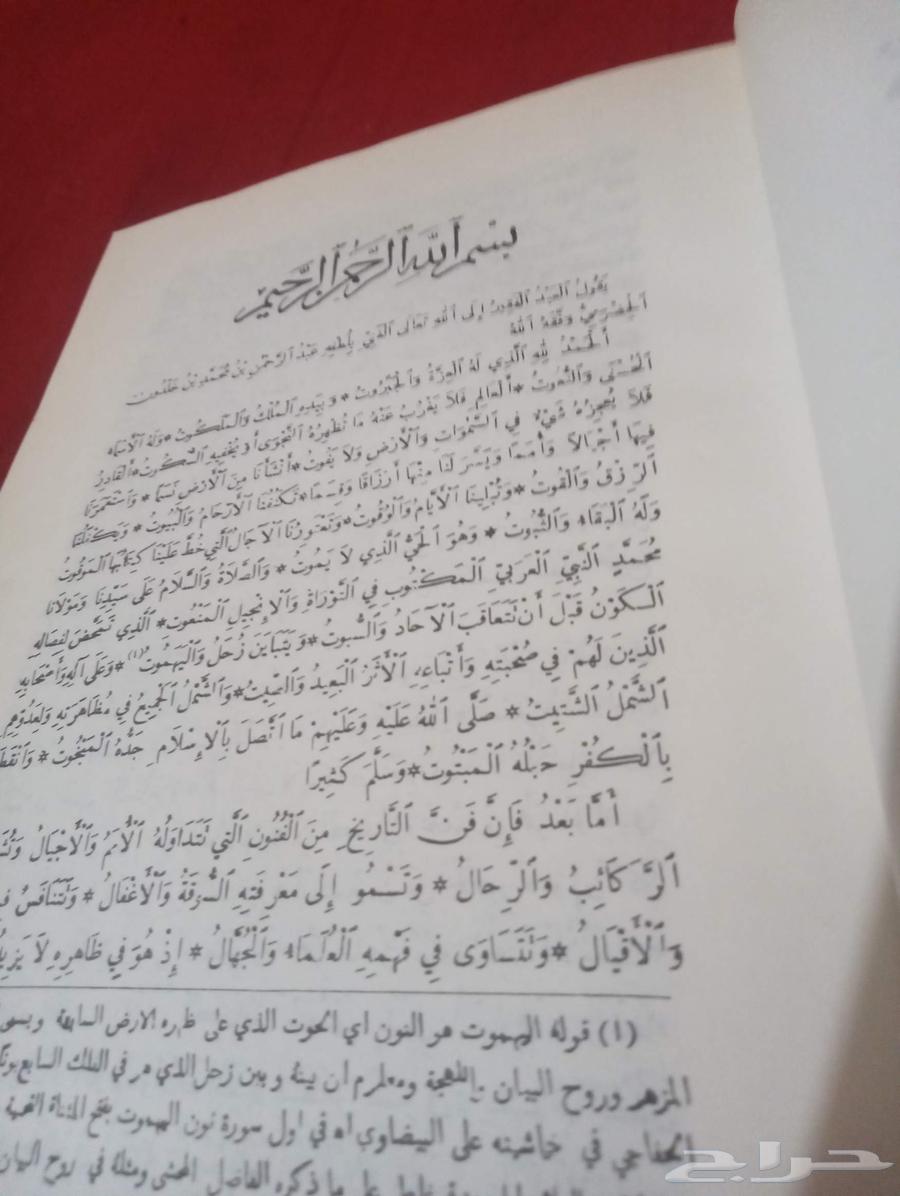 بِسْمِ ٱللهِ ٱلرَّحْمٰنِ ٱلرَّحِيمِ
يَقُولُ ٱلْعَبْدُ ٱلْفَقِيرُ إِلَى ٱللهِ تَعَالَى ٱلْغَنِيُّ بِلُطْفِهِ عَبْدُ ٱلرَّحْمٰنِ بْنُ مُحَمَّدِ بْنِ خَلْدُونَ
ٱلْحَضْرَمِيُّ وَفَّقَهُ ٱللهُ
أَلْحَمْدُ لِلهِ ٱلَّذِي لَهُ ٱلْعِزَّةُ وَٱلْجَبَرُوتُ * وَبِيَدِهِ ٱلْمُلْكُ وَٱلْمَلَكُوتُ * وَلَهُ ٱلْأَسْمَاءُ
ٱلْحُسْنَى وَٱلنُّعُوتُ * ٱلْعَالِمُ فَلاَ يَعْزُبُ عَنْهُ مَا تُظْهِرُهُ ٱلنَّجْوَى أَوْ يُخْفِيهِ ٱلسُّكُوتُ * ٱلْقَادِرُ
فَلاَ يُعْجِزُهُ شَيْءٌ فِي ٱلسَّمٰوَاتِ وَٱلْأَرْضِ وَلاَ يَفُوتُ * أَنْشَأَنَا مِنَ ٱلْأَرْضِ نَسَمًا * وَٱسْتَعْمَرَنَا
فِيهَا أَجْيَالاً وَأُمَمًا وَيَسَّرَ لَنَا مِنْهَا أَرْزَاقًا وَقِسَمًا * تَكْنُفُنَا ٱلْأَرْحَامُ وَٱلْبُيُوتُ * وَيَكْفُلُنَا
ٱلرِّزْقُ وَٱلْقُوتُ * وَتُبْلِينَا ٱلْأَيَّامُ وَٱلْوُقُوتُ * وَتَعْتَوِرُنَا ٱلْآجَالُ ٱلَّتِي خُطَّ عَلَيْنَا كِتَابُهَا ٱلْمَوْقُوتُ
وَلَهُ ٱلْبَقَاءُ وَٱلثُّبُوتُ * وَهُوَ ٱلْحَيُّ ٱلَّذِي لاَ يَمُوتُ * وَٱلصَّلاَةُ وَٱلسَّلاَمُ عَلَى سَيِّدِنَا وَمَوْلاَنَا
مُحَمَّدٍ ٱلنَّبِيِّ ٱلْعَرَبِيِّ ٱلْمَكْتُوبِ فِي ٱلتَّوْرَاةِ وَٱلْإِنْجِيلِ ٱلْمَنْعُوتِ * ٱلَّذِي تَمَخَّضَ لِفِصَالِهِ
ٱلْكَوْنُ قَبْلَ أَنْ تَتَعَاقَبَ ٱلْآحَادُ وَٱلسُّبُوتُ * وَيَتَبَايَنَ زُحَلُ وَٱلْيَهَمُوتُ (١) * وَعَلَى آلِهِ وَأَصْحَابِهِ
ٱلَّذِينَ لَهُمْ فِي صُحْبَتِهِ وَأَتْبَاعِهِ ٱلْأَثَرُ ٱلْبَعِيدُ وَٱلصِّيتُ * وَٱلشَّمْلُ ٱلْجَمِيعُ فِي مُظَاهَرَتِهِ وَلِعَدُوِّهِمِ
ٱلشَّمْلُ ٱلشَّتِيتُ * صَلَّى ٱللهُ عَلَيْهِ وَعَلَيْهِمْ مَا ٱتَّصَلَ بِٱلْإِسْلاَمِ جَدُّهُ ٱلْمَبْخُوتُ *
بِٱلْكُفْرِ حَبْلُهُ ٱلْمَبْتُوتُ * وَسَلَّمَ كَثِيرًا
أَمَّا بَعْدُ فَإِنَّ فَنَّ ٱلتَّارِيخِ مِنَ ٱلْفُنُونِ ٱلَّتِي تَتَدَاوَلُهُ ٱلْأُمَمُ وَٱلْأَجْيَالُ
ٱلرَّكَائِبُ وَٱلرِّحَالُ * وَتَسْمُو إِلَى مَعْرِفَتِهِ ٱلسُّوقَةُ وَٱلْأَغْفَالُ * وَتَتَنَافَسُ
وَٱلْأَقْيَالُ * وَتَتَسَاوَى فِي فَهْمِهِ ٱلْعُلَمَاءُ وَٱلْجُهَّالُ * إِذْ هُوَ فِي ظَاهِرِهِ لاَ
(١) قوله اليهموت هو النون اي الحوت الذي على ظهره الارض السابعة
المزهر وروح البيان باللهجة ومعلوم ان بينه وبين زحل الذي هو في الفلك السابع
الخفاجي في حاشيته على البيضاوي اه في اول سورة نون اليهموت بفتح المثناة التحتية
على ما ذكره الفاضل المحشي ومثله في روح البيان
حراج